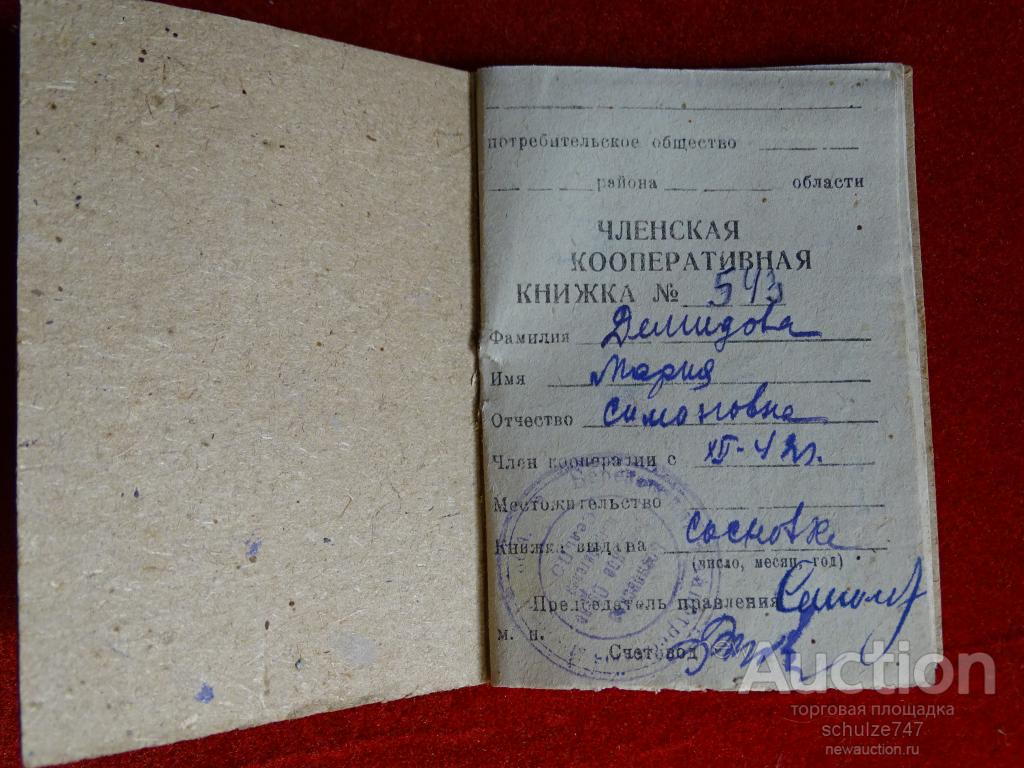 потребительское общество
района области
ЧЛЕНСКАЯ
КООПЕРАТИВНАЯ
КНИЖКА № 543
Фамилия Демидова
Имя Мария
Отчество Симоновна
Член кооперации с XII-42г.
Местожительство
Книжка выдана Сосновка
(число, месяц, год)
Председатель правления
м. п.
Счетовод
Auction
торговая площадка
schulze747
newauction.ru